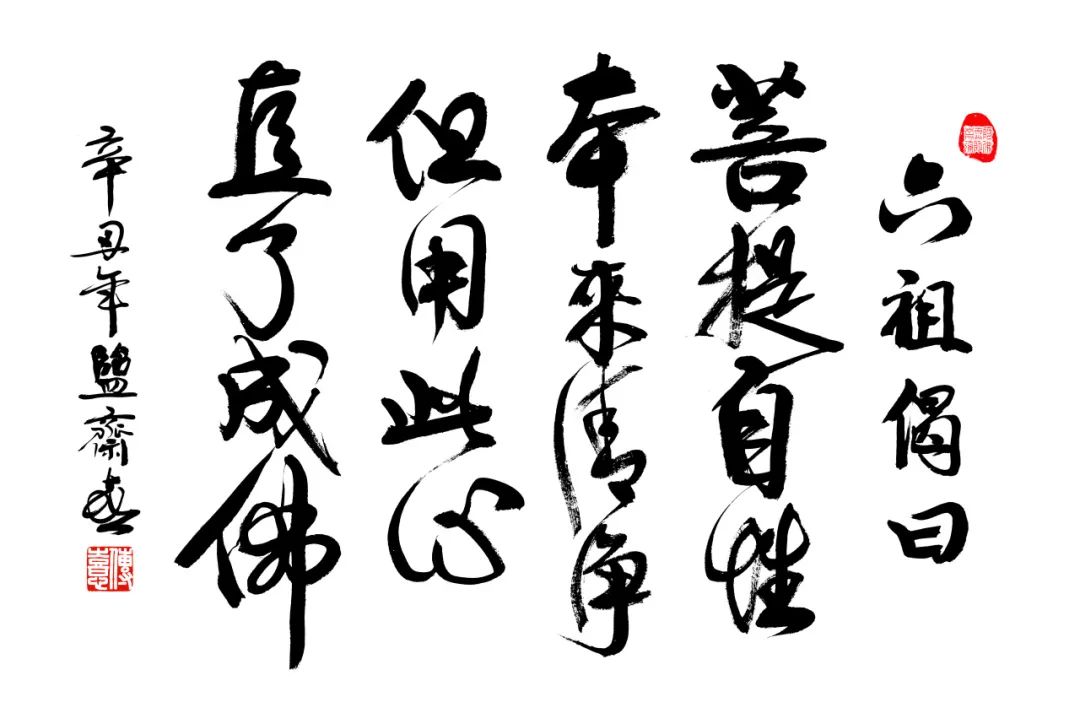 六祖偈曰
菩提自性
本来清净
但用此心
直了成佛
辛丑年盐斋